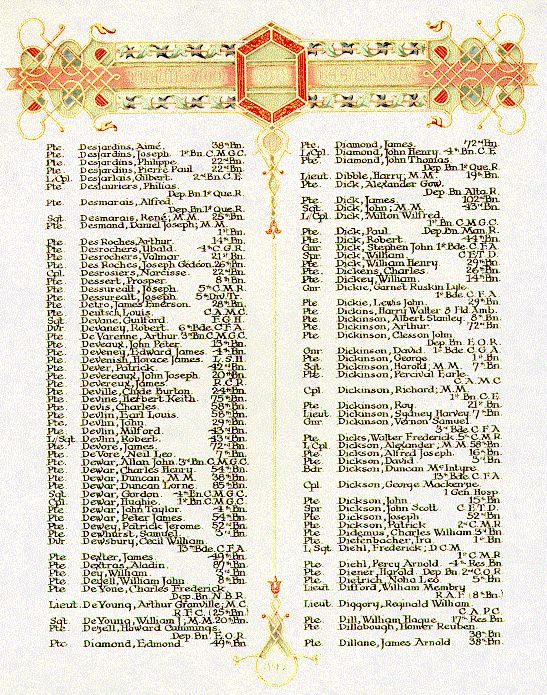 Pte. Desjardins, Aimé. 38th Bn.
Pte. Desjardins, Joseph 1st Bn. C.M.G.C.
Pte. Desjardins, Philippe 22nd Bn.
Pte. Desjardins, Pierre Paul 22nd Bn.
L/Cpl. Desjarlais, Gilbert 2nd Bn. C.E.
Pte. Deslauriers, Philias.
Dep. Bn. 1st Que. R.
Pte. Desmarais, Alfred.
Dep. Bn. 1st Que. R.
Sgt. Desmarais, René, M.M. 25th Bn.
Pte. Desmand, Daniel Joseph; M.M.
1st Bn.
Pte. Des Roches, Arthur 14th Bn.
Pte. Desrochers, Ubald. 4th C.G.R.
Pte. Desrochers, Valmar 21st Bn.
Pte. Des Roches, Joseph Gédéon 26th Bn.
Cpl. Desrosiers, Narcisse 22nd Bn.
Pte. Dessert, Prosper 8th Bn.
Pte. Dessureault, Joseph. 5th C.M.R.
Pte. Dessureault, Joseph 5th Div. Tr.
Pte. Detro, James Emerson. 28th Bn.
Pte. Deutsch, Louis. C.A.M.C.
Sgt. Devane, Guilford F.G.H.
Dvr. Devaney, Robert. 6th Bde. C.F.A.
Pte. De Varenne, Arthur 3rd Bn. C.M.G.C.
Pte. Deveaux, John Peter 13th Bn.
Pte. Deveney, Edward James 4th Bn.
Pte. Devenish, Horace James L.S.H.
Pte. Dever, Patrick 42nd Bn.
Pte. Devereaux, John Joseph 20th Bn.
Pte. Devereux, James R.C.R.
Pte. Deville, Clyde Burton 24th Bn.
Pte. Devine, Herbert Keith 75th Bn.
Pte. Devis, Charles 58th Bn.
Pte. Devlin, Earl Louis 58th Bn.
Pte. Devlin, John 29th Bn.
Pte. Devlin, Milford 43rd Bn.
L/Sgt. Devlin, Robert. 43rd Bn.
Pte. Devore, James 72nd Bn.
Pte. De Vore, Neil Leo. 7th Bn.
Pte. Dewar, Allan John 3rd Bn. C.M.G.C.
Pte. Dewar, Charles Henry 54th Bn.
Pte. Dewar, Duncan, M.M. 38th Bn.
Pte. Dewar, Duncan Lorne 85th Bn.
Sgt. Dewar, Gordon 4th Bn. C.M.G.C.
Cpl. Dewar, Hughie 1st Bn. C.M.G.C.
Pte. Dewar, John Taylor 4th Bn.
Pte. Dewar, Peter James 54th Bn.
Pte. Dewey, Patrick Jerome 52nd Bn.
Pte. Dewhurst, Samuel 3rd Bn.
Dvr. Dewsbury, Cecil William
13th Bde. C.F.A.
Pte. Dexter, James 49th Bn.
Pte. Dextras, Aladin 87th Bn.
Pte. Dey, William 3rd Bn.
Pte. Deyell, William John 8th Bn.
Pte. De Yone, Charles Frederick
Dep. Bn. N.B.R.
Lieut. De Young, Arthur Granville, M.C.
R.F.C. (25th Bn.)
Sgt. De Young, William J., M.M. 20th Bn.
Pte. Dezell, Howard Cummings.
Dep. Bn. E.O.R.
Pte. Diamond, Edmond 49th Bn.
Pte. Diamond, James 72nd Bn.
L/Cpl. Diamond, John Henry 4th Bn. C.E.
Pte. Diamond, John Thomas
Dep. Bn. 1st Que. R.
Lieut. Dibble, Harry, M.M. 19th Bn.
Pte. Dick, Alexander Gow.
Dep. Bn. Alta. R.
Pte. Dick, James 102nd Bn.
Sgt. Dick, John; M.M. 43rd Bn.
L/Cpl. Dick, Milton Wilfred
1st Bn. C.M.G.C.
Pte. Dick, Paul Dep. Bn. Man. R.
Pte. Dick, Robert 44th Bn.
Gnr. Dick, Stephen John 1st Bde. C.F.A.
Spr. Dick, William C.E.T.D.
Pte. Dick, William Henry 29th Bn.
Pte. Dickens, Charles 26th Bn.
Pte. Dickey, William 14th Bn.
Gnr. Dickie, Garnet Ruskin Lyle
1st Bde. C.F.A.
Pte. Dickie, Lewis John 29th Bn.
Pte. Dickins, Harry Walter 8 Fld. Amb.
Pte. Dickinson, Albert Stanley 8th Bn.
Pte. Dickinson, Arthur 72nd Bn.
Pte. Dickinson, Clesson John
Dep. Bn. E.O.R.
Gnr. Dickinson, David 1st Bde. C.G.A.
Pte. Dickinson, George 1st Bn.
Sgt. Dickinson, Harold, M.M. 7th Bn.
Pte. Dickinson, Percival Earle
C.A.M.C.
Cpl. Dickinson, Richard; M.M.
1st Bn. C.E.
Pte. Dickinson, Roy 21st Bn.
Lieut. Dickinson, Sydney Harvey 7th Bn.
Gnr. Dickinson, Vernon Samuel
3rd Bde. C.F.A.
Pte. Dicks, Walter Frederick 5th C.M.R.
L/Cpl. Dickson, Alexander, M.M. 58th Bn.
Pte. Dickson, Alfred Joseph 16th Bn.
Pte. Dickson, David 3rd Bn.
Bdr. Dickson, Duncan McIntyre
13th Bde. C.F.A.
Cpl. Dickson, George Mackenzie
1 Gen. Hosp.
Pte. Dickson, John 15th Bn.
Spr. Dickson, John Scott C.E.T.D.
Pte. Dickson, Joseph 52nd Bn.
Pte. Dickson, Patrick 2nd C.M.R.
Pte. Didemus, Charles William 3rd Bn.
Pte. Diefenbacher, Ira 1st Bn.
L/Sgt. Diehl, Frederick; D.C.M.
1st C.M.R.
Pte. Diehl, Percy Arnold 4th Res. Bn.
Pte. Diener, Harold Dep. Bn. 2nd C.O.R.
Pte. Dietrich, Noha Leo. 5th Bn.
Lieut. Difford, William Membry
R.A.F. (8th Bn.)
Lieut. Diggory, Reginald William
C.A.P.C.
Pte. Dill, William Hague 17th Res. Bn.
Pte. Dillabough, Homer Reuben.
38th Bn.
Pte. Dillane, James Arnold 38th Bn.